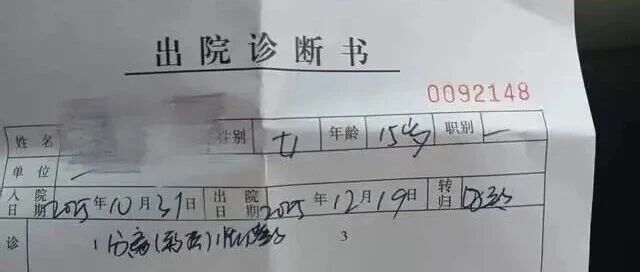 出院诊断书
0092148
姓名 性别 女 年龄 15岁 职别 一
单位
入院日期 2025年10月31日 出院日期 2025年12月19日 转归 好转
诊 1 分离(转换)性障碍 3